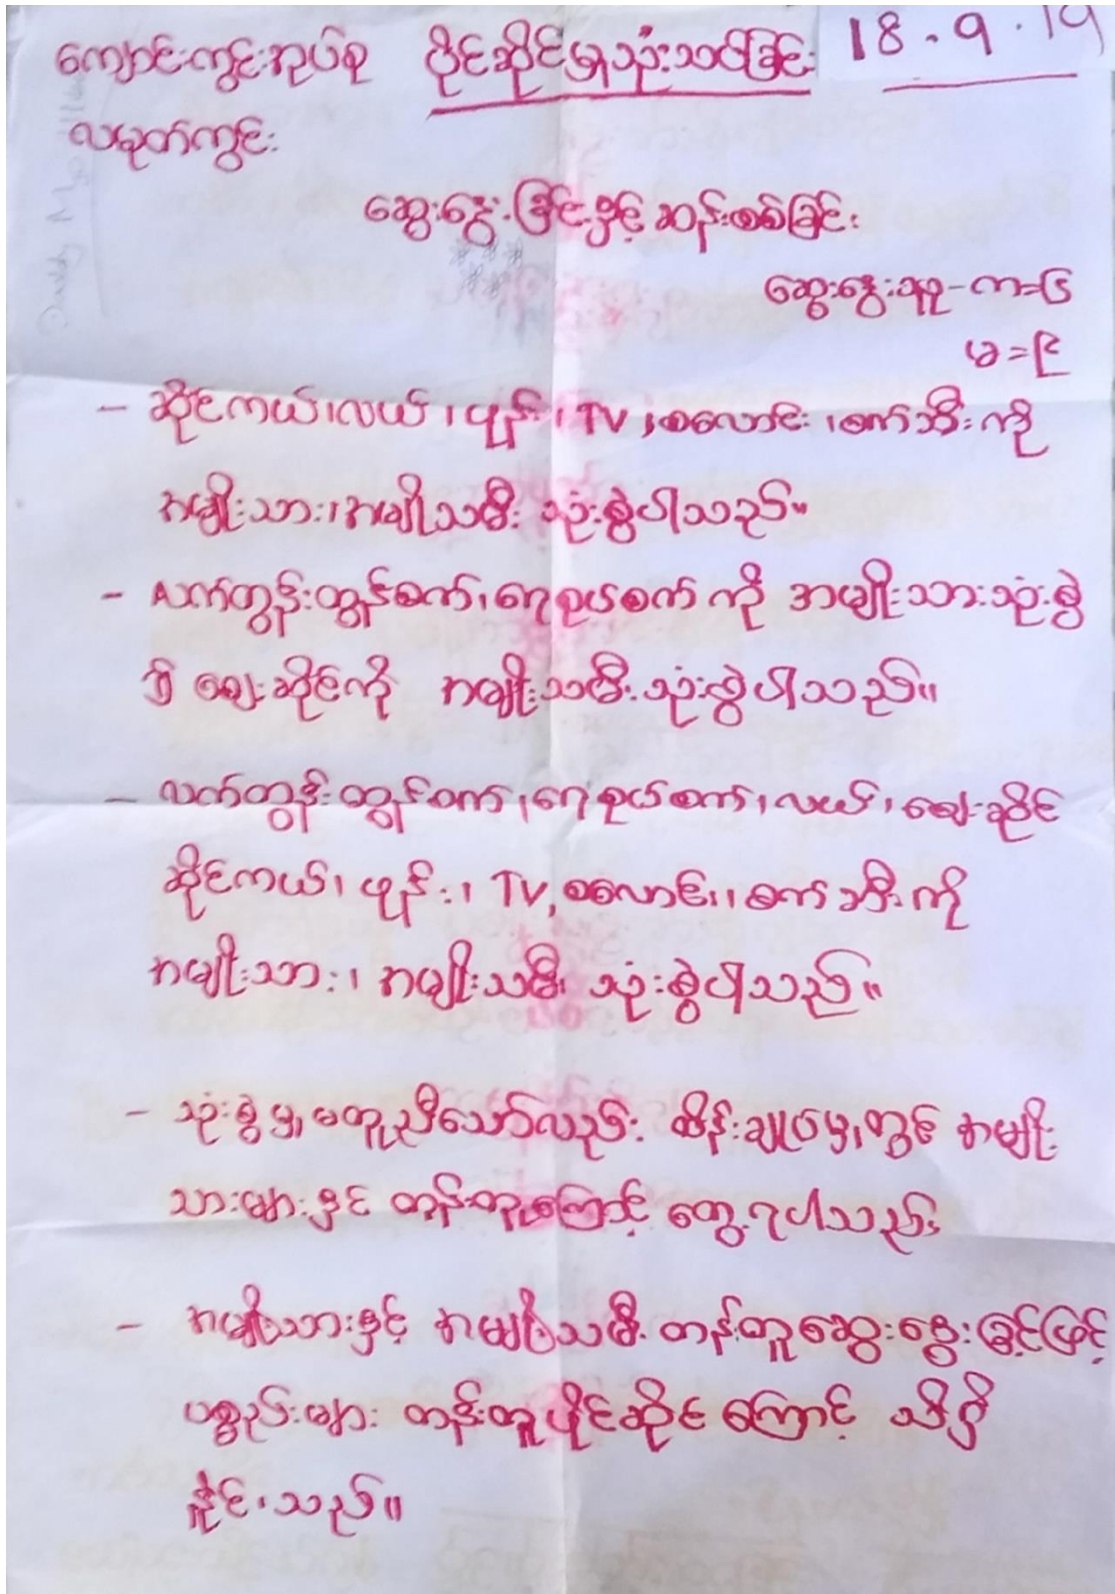 ကျောင်းကွင်းအုပ်စု ပိုင်ဆိုင်မှုသုံးသပ်ခြင်း 18.9.19
လမုတ်ကွင်း
ဆွေးနွေးခြင်းနှင့်ဆန်းစစ်ခြင်း
ဆွေးနွေးသူ-ကျား=၆
မ=၉
- ဆိုင်ကယ်၊လယ်၊ဖုန်း၊TV,စလောင်း၊စက်ဘီးကို
အမျိုးသား၊အမျိုးသမီး သုံးစွဲပါသည်။
- လက်တွန်းထွန်စက်၊ရေစုပ်စက်ကို အမျိုးသားသုံးစွဲ
ပြီး ဈေးဆိုင်ကို အမျိုးသမီးသုံးစွဲပါသည်။
- လက်တွန်းထွန်စက်၊ရေစုပ်စက်၊လယ်၊ဈေးဆိုင်
ဆိုင်ကယ်၊ဖုန်း၊TV,စလောင်း၊စက်ဘီးကို
အမျိုးသား၊အမျိုးသမီး သုံးစွဲပါသည်။
- သုံးစွဲမှုမတူညီသော်လည်း ထိန်းချုပ်မှုတွင် အမျိုး
သားများနှင့် တန်းတူကြောင့် တွေ့ရပါသည်။
- အမျိုးသားနှင့် အမျိုးသမီးတန်းတူဆွေးနွေးခြင်းဖြင့်
ပစ္စည်းများ တန်းတူပိုင်ဆိုင်ကြောင့် သိရှိ
နိုင်သည်။